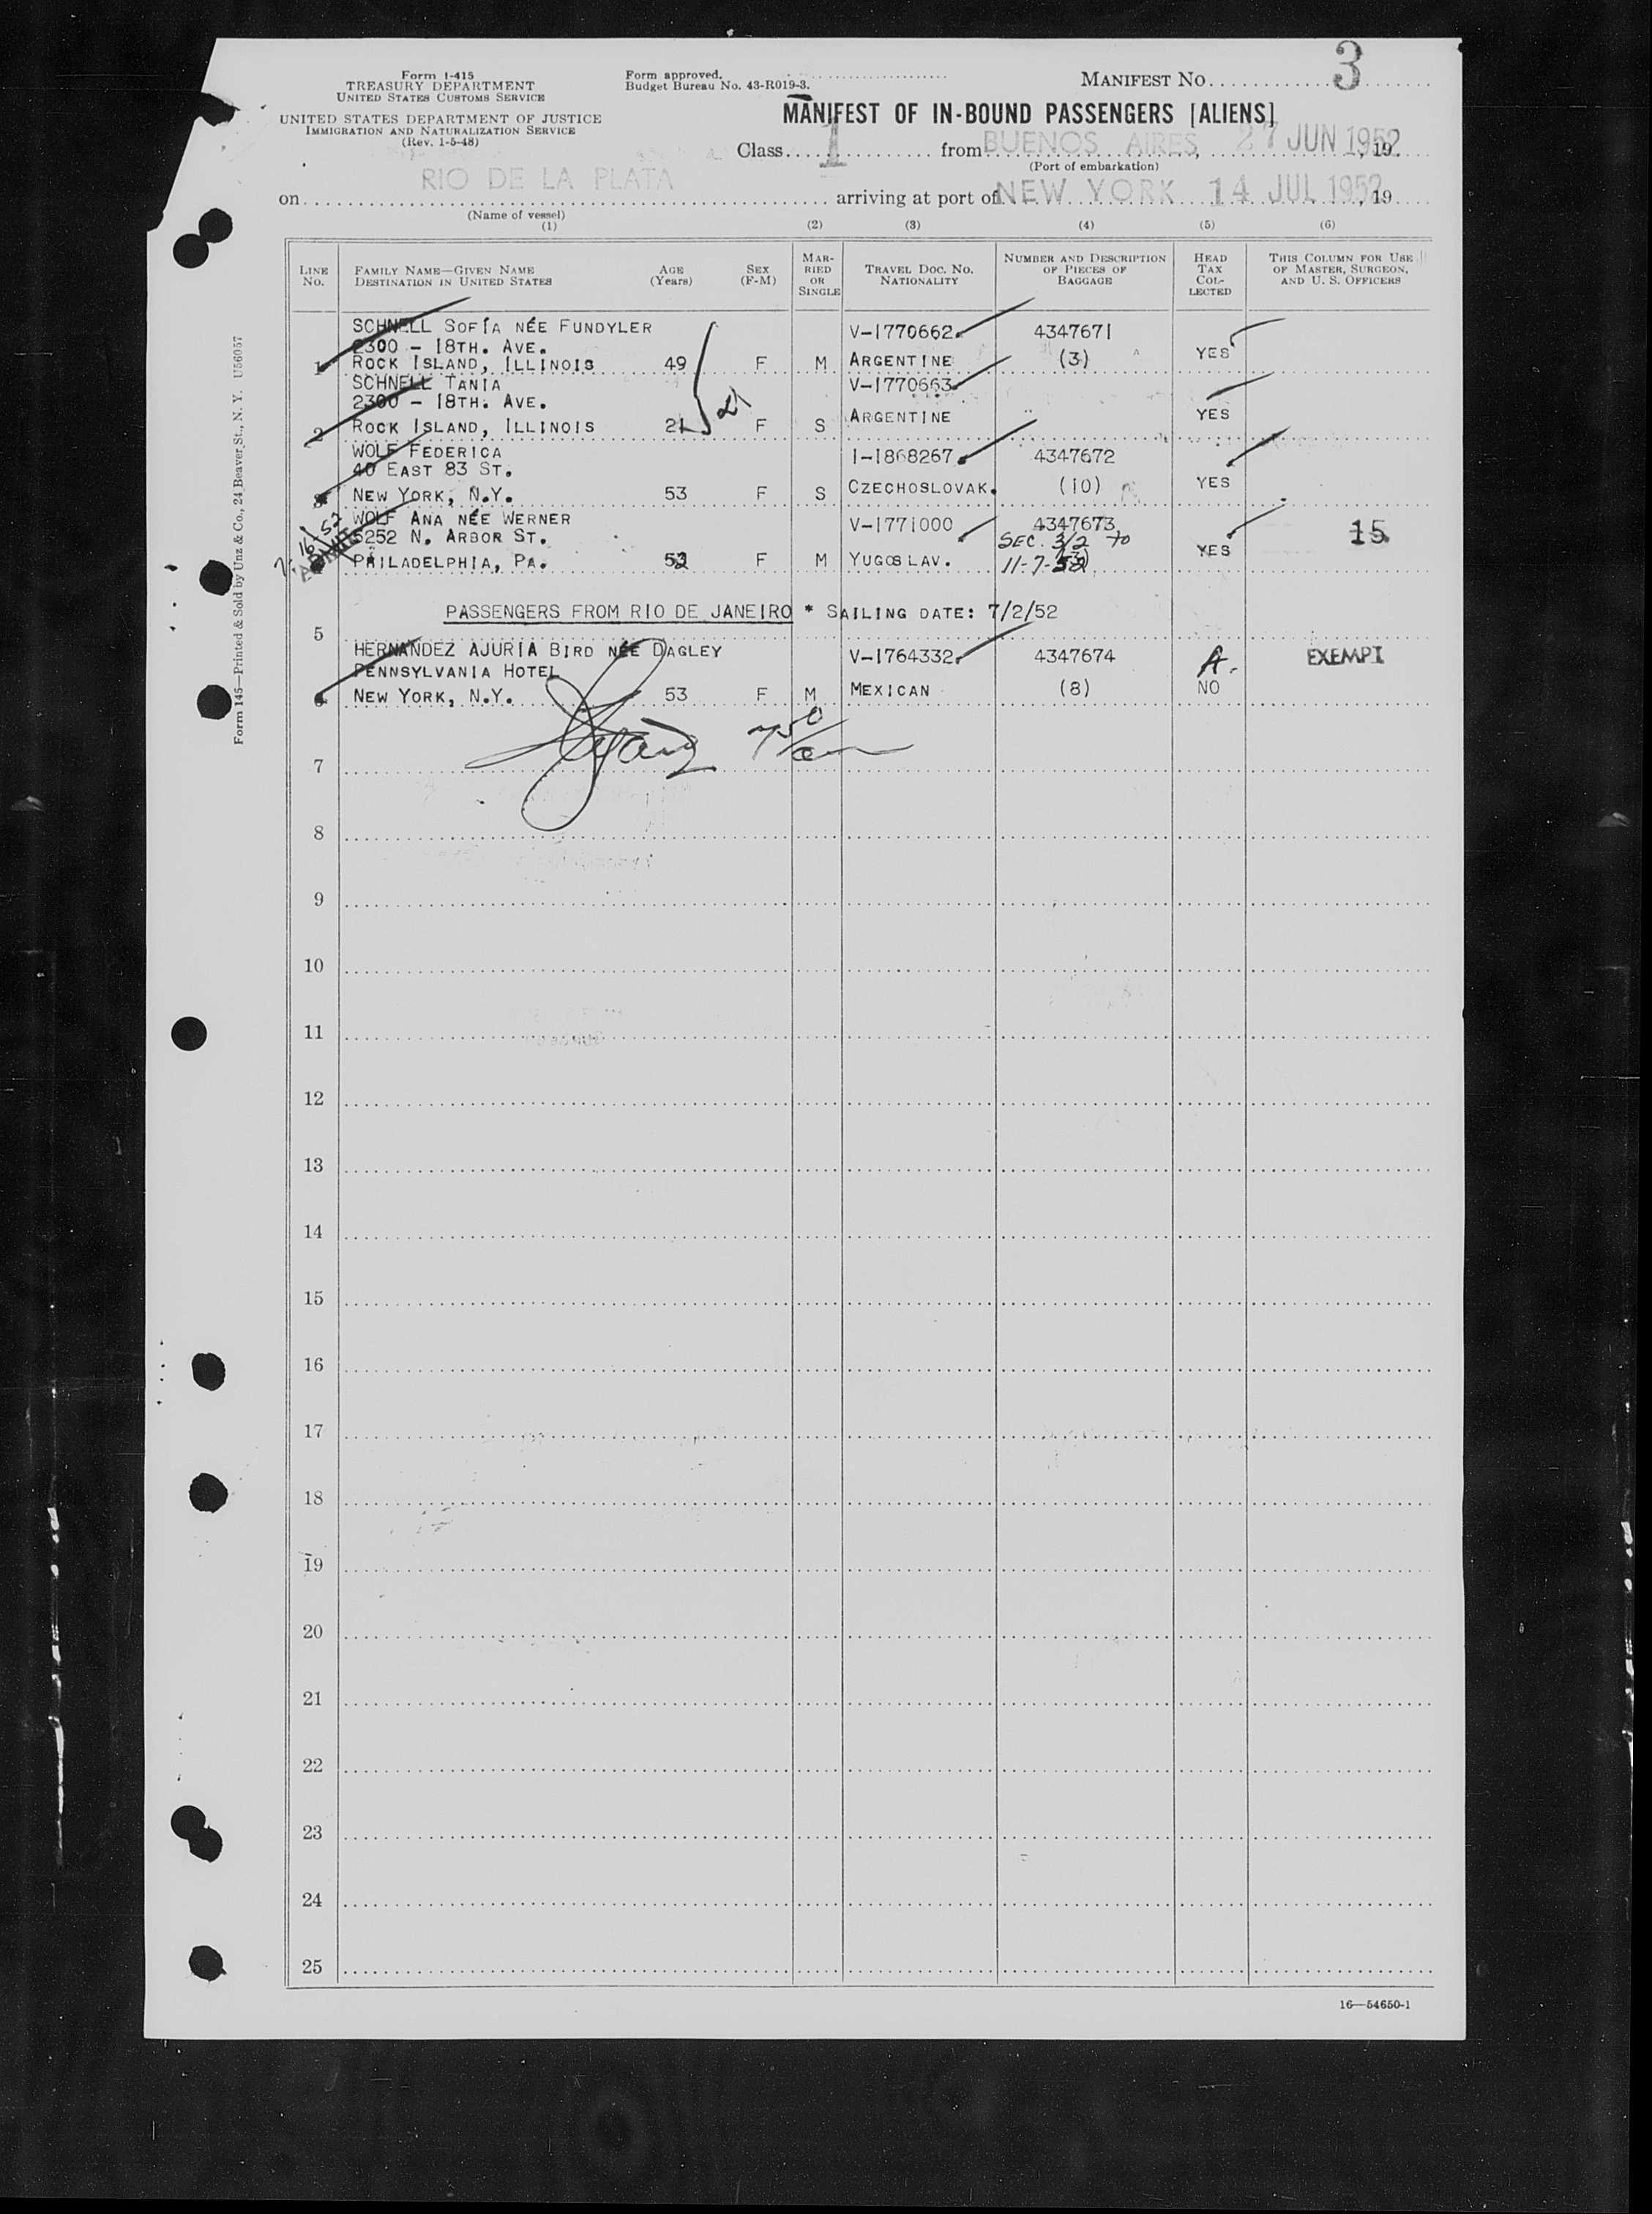 Form I-415
TREASURY DEPARTMENT
UNITED STATES CUSTOMS SERVICE
UNITED STATES DEPARTMENT OF JUSTICE
IMMIGRATION AND NATURALIZATION SERVICE
(Rev. 1-5-48)
Form approved.
Budget Bureau No. 43-R019-3.
MANIFEST NO. 3
MANIFEST OF IN-BOUND PASSENGERS [ALIENS]
Class 1 from BUENOS AIRES, 27 JUN 1952, 19
(Port of embarkation)
on RIO DE LA PLATA arriving at port of NEW YORK 14 JUL 1952, 19
(Name of vessel)
(1) (2) (3) (4) (5) (6)
LINE NO.
FAMILY NAME—GIVEN NAME
DESTINATION IN UNITED STATES
AGE (Years)
SEX (F-M)
MARRIED OR SINGLE
TRAVEL DOC. NO. NATIONALITY
NUMBER AND DESCRIPTION OF PIECES OF BAGGAGE
HEAD TAX COLLECTED
THIS COLUMN FOR USE OF MASTER, SURGEON, AND U. S. OFFICERS
SCHNELL SOFÍA NÉE FUNDYLER V-1770662 4347671
2300 - 18TH. AVE.
1 ROCK ISLAND, ILLINOIS 49 F M ARGENTINE (3) YES
SCHNELL TANIA V-1770663
2300 - 18TH. AVE.
2 ROCK ISLAND, ILLINOIS 21 F S ARGENTINE YES
WOLF FEDERICA I-1868267 4347672
40 EAST 83 ST.
3 NEW YORK, N.Y. 53 F S CZECHOSLOVAK. (10) YES
WOLF ANA NÉE WERNER V-1771000 4347673
5252 N. ARBOR ST. SEC. 3/2 to 15
PHILADELPHIA, PA. 52 F M YUGOSLAV. 11-7-52 YES
7-16-52
PASSENGERS FROM RIO DE JANEIRO * SAILING DATE: 7/2/52
5
HERNANDEZ AJURIA BIRD NÉE DAGLEY V-1764332 4347674 A. EXEMPT
PENNSYLVANIA HOTEL
NEW YORK, N.Y. 53 F M MEXICAN (8) NO
7
8
9
10
11
12
13
14
15
16
17
18
19
20
21
22
23
24
25
16—54650-1
Form 145—Printed & Sold by Unz & Co., 24 Beaver St., N. Y. U56057